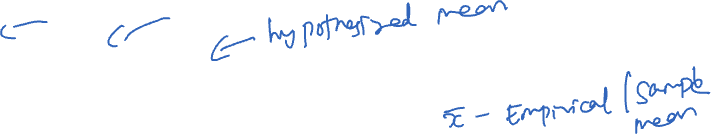 ← ← ← hypothesized mean
x̄ - Empirical / Sample
mean